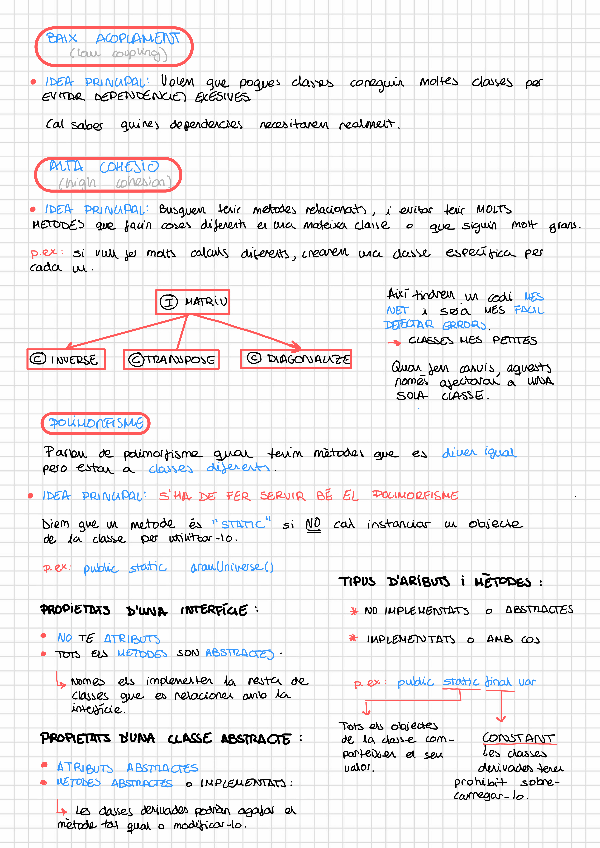 BAIX ACOPLAMENT
(low coupling)
• IDEA PRINCIPAL: Volem que poques classes coneguin moltes classes per
EVITAR DEPENDENCIES EXESIVES.
Cal saber quines dependencies necesitarem realment.
ALTA COHESIO
(high cohesion)
• IDEA PRINCIPAL: Busquem tenir metodes relacionats, i evitar tenir MOLTS
METODES que facin coses diferents en una mateixa classe o que siguin molt grans.
p.ex: si vull fer molts calculs diferents, crearem una classe específica per
cada un.
I MATRIU
C INVERSE
C TRANSPOSE
C DIAGONALIZE
Així tindrem un codi MES
NET i serà MÉS FACIL
DETECTAR ERRORS.
→ CLASSES MES PETITES
Quan fem canvis, aquests
només afectaran a UNA
SOLA CLASSE.
POLIMORFISME
Parlem de polimorfisme quan tenim mètodes que es diuen igual
pero estan a classes diferents.
• IDEA PRINCIPAL: S'HA DE FER SERVIR BÉ EL POLIMORFISME
Diem que un metode és "STATIC" si NO cal instanciar un objecte
de la classe per utilitzar-lo.
p.ex: public static drawUniverse()
PROPIETATS D'UNA INTERFÍCIE:
• NO TÉ ATRIBUTS
• TOTS ELS METODES SON ABSTRACTES.
Nomes els implementen la resta de
classes que es relacionen amb la
interfície.
PROPIETATS D'UNA CLASSE ABSTRACTE:
• ATRIBUTS ABSTRACTES
• METODES ABSTRACTES O IMPLEMENTATS:
Les classes derivades podran agafar el
mètode tal qual o modificar-lo.
TIPUS D'ARIBUTS I MÈTODES:
* NO IMPLEMENTATS O ABSTRACTES
* IMPLEMENTATS O AMB COS
p.ex: public static final var
Tots els objectes
de la classe com-
parteixen el seu
valor.
CONSTANT
Les classes
derivades tenen
prohibit sobre-
carregar-lo.